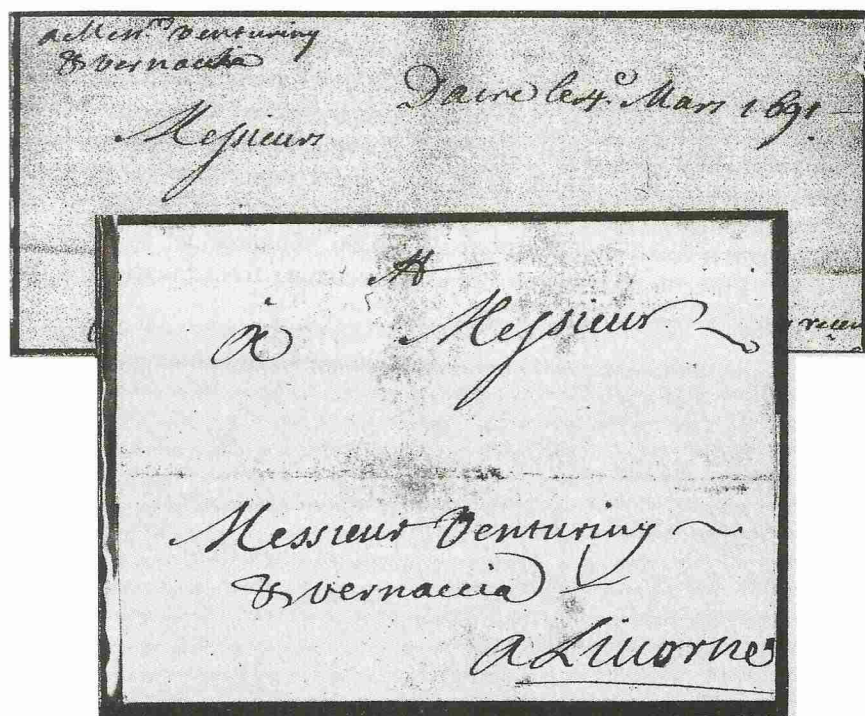 a Mess.rs Venturiny
& vernaccia
Daire le 4.e Mars 1691
Messieurs
receu
A
à Messieurs
Messieurs Venturiny
& vernaccia
a Livorne